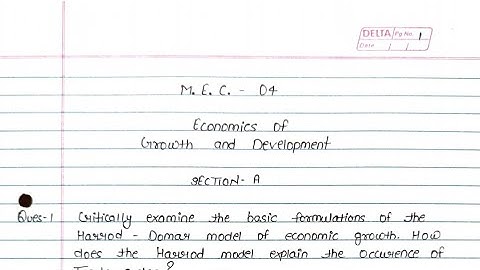 DELTA Pg No. 1
Date / /
M. E. C. - 04
Economics of
Growth and Development
SECTION - A
Ques-1 Critically examine the basic formulations of the
Harrod - Domar model of economic growth. How
does the Harrod model explain the occurence of